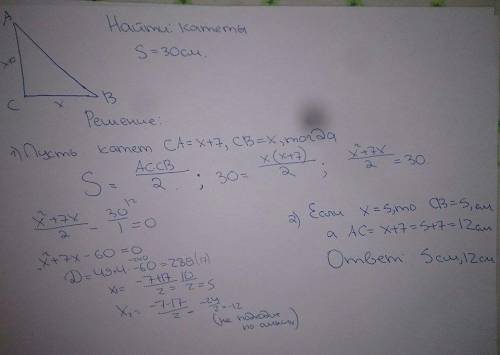 A
Найти: катеты
S = 30 см.
C x B
Решение:
1) Пусть катет CA = x+7, CB = x, тогда
S = AC CB / 2 ; 30 = x(x+7) / 2 ; x²+7x / 2 = 30.
x²+7x / 2 - 30 / 1 = 0
x²+7x-60=0
x₁ = -7+17 / 2 = 10 / 2 = 5
x₂ = -7-17 / 2 = -24 / 2 = -12
(не подходит
по смыслу)
2) Если x = 5, то CB = 5 см,
а AC = x+7 = 5+7 = 12 см
Ответ: 5 см, 12 см